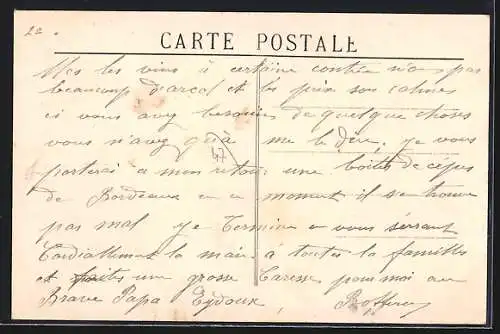 22
CARTE POSTALE
les vins à certaine contrée n'a pas
beaucoup d'arcol et les prix son calmes
si vous avez besoin de quelque choses
vous n'avez qu'à me le dire, je vous
porterai a mon retour une boites de cèpes
de Bordeaux en a moment il s'en trouve
pas mal je Termine en vous serrant
Cordiallement la main à toutes la familles
et faites une grosse Caresse pour moi au
Brave Papa Eydoux,